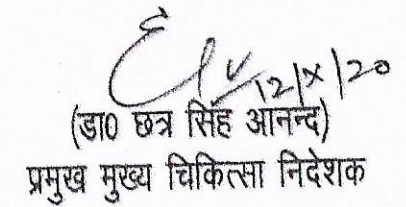 12/X/20
(डा0 छत्र सिंह आनन्द)
प्रमुख मुख्य चिकित्सा निदेशक